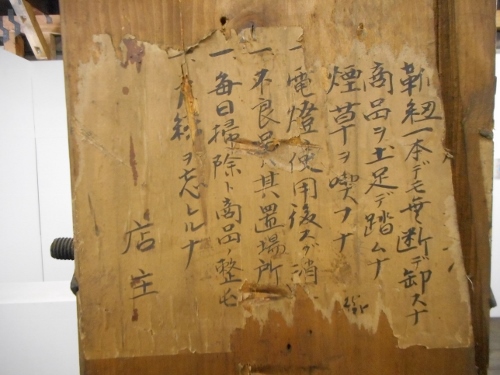 靴紐一本デモ無断デ卸スナ
商品ヲ土足デ踏ムナ
煙草ヲ喫フナ
一、電燈使用後スグ消
一、不良品ハ其置場所
一、毎日掃除ト商品整
ヲ忘レルナ
店主